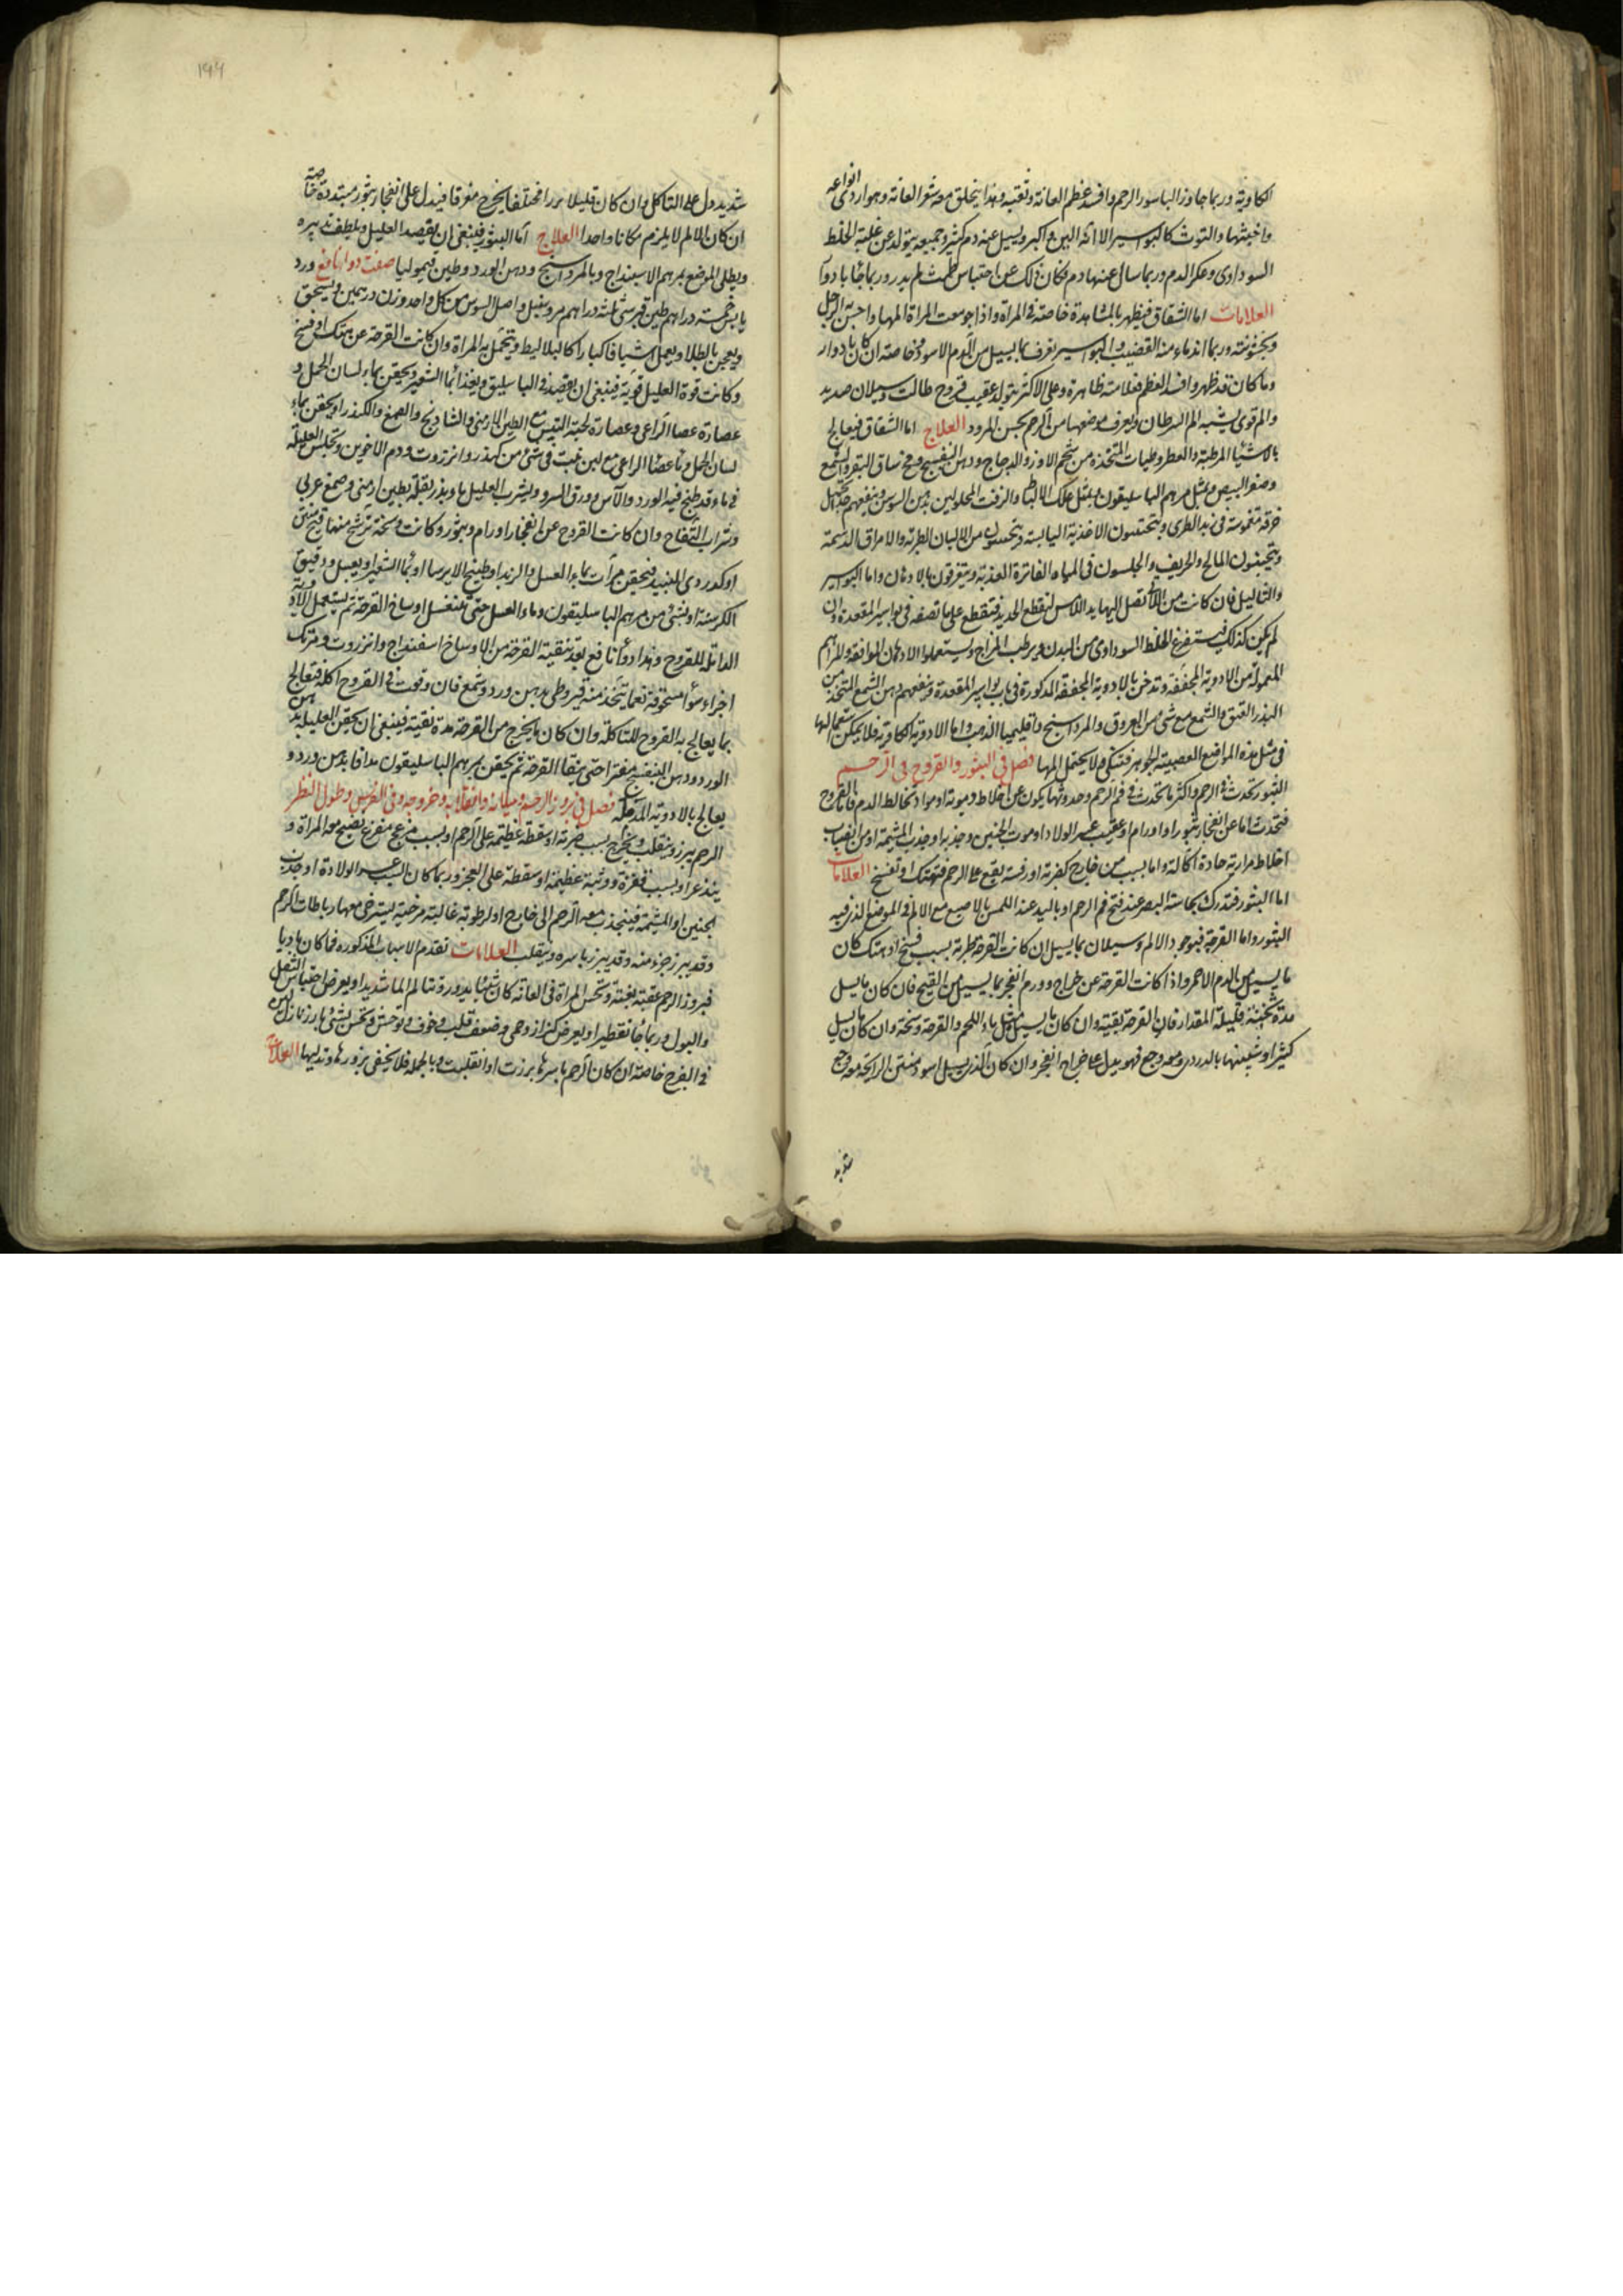 الكاوية وربما جاوز الباسور الرحم وافسد عظم العانة وثقبه وهذا ينحلق معه شعر العانة وهو اردى انواعه
واخبثها والتوث كالبواسير الا انه الين واكبر ويسيل عنه دم كثير وجميعه يتولد عن غلبة الخلط
السوداوى وعكر الدم وربما سال عنها دم فكان ذلك عن احتباس طمث لم يدر وربما جا بادوار
العلامات اما الشقاق فيظهر بالمشاهدة خاصة فى المراة واذا جومعت المراة المها واحس به الرجل
وبخشونته وربما اندماء منه القضيب والبواسير تعرف بما يسيل من الدم الاسود خاصة ان كان بادوار
وما كان قد ظهر وافسد العظم فعلامته ظاهرة وعلى الاكثر يتولد عقيب قروح طالت وسيلان صديد
والم قوى يشبه الم السرطان ويعرف موضعها من الرحم بحس المرود العلاج اما الشقاق فيعالج
بالاشيا المرطبة والقيروطيات المتخذة من شحم الاوز والدجاج ودهن البنفسج ومخ ساق البقر والشمع
وصفر البيض ومثل مرهم الباسليقون ومثل علك الالبطا والزفت المحلولين بدهن السوسن وينفعهم تحمل
خرقة مغموسة فى زبد الطرى ويجتنبون الاغذية اليابسة ويتحسون من الالبان الطرية والامراق الدسمة
ويتجنبون المالح والحريف والجلسون فى المياه الفاترة العذبة ويتعرقون بالادهان واما البواسير
والثاليل فان كانت من تصل اليها يد اللامس لتقطع الحديد فتقطع على ما تصفه فى بواسير المقعدة وان
لم يكن كذلك فيستفرغ الخلط السوداوى من البدن ويرطب المزاج ويستعملوا الادهان الموافقة والمراهم
المعمولة من الادوية المجففة وتدخن بالادوية المجففة المذكورة فى باب بواسير المقعدة وينفعهم دهن الشمع المتخذ من
البذر العتق والشمع مع شى من العروق والمرداسنج واقليميا الذهب واما الادوية الكاوية فلا يمكن استعمالها
فى مثل هذه المواضع العصبية الجوهر فتنكى ولا يحتمل المها فصل فى البثور والقروح فى الرحم
البثور تحدث فى الرحم واكثر ما تحدث فى فم الرحم وحدوثها يكون عن اخلاط دموية او مواد تخالط الدم فاما القروح
فتحدث اما عن انفجار بثور او اورام او عقيب عسر الولاد او موت الجنين وجذبه او جذب المشيمة او من انصباب
اخلاط مرارية حادة اكالة واما بسبب من خارج كضربة او رفسة يقع على الرحم فتهتك او تفسخ العلامات
اما البثور فتدرك بحاسة البصر عند فتح فم الرحم او باليد عند اللمس بالاصبع مع الالم فى الموضع الذى فيه
البثور واما القرحة فبوجود الالم وسيلان ما يسيل ان كانت القرحة طرية بسبب فسخ او هتك كان
ما يسيل من الدم الاحمر واذا كانت القرحة عن خراج وورم انفجر بما يسيل من القيح فان كان ما يسيل
مدة ثخينة قليلة المقدار فان القرحة نقية وان كان ما يسيل مثل ماء اللحم والقرحة وسخة وان كان ما يسيل
كثيرا وشبيها بالدردى ومعه وجع فهو يدل على خراج انفجر وان كان الذى يسيل اسود منتن الرايحة معه وجع
شديد
۱۹۹
شديد دل على التاكل وان كان قليلا نزرا مختلفا يخرج متفرقا فيدل على انفجار بثور متبددة خاصة
ان كان الالم لا يلزم مكانا واحدا العلاج اما البثور فينبغى ان يفصد العليل ويلطف تدبيره
ويطلى الموضع بمرهم الاسفيداج وبالمرداسنج ودهن الورد وطين قيموليا صفت دوا نافع ورد
يابس خمسة دراهم طين قبرسى ثلثة دراهم مر وسنبل واصل السوسن من كل واحد وزن درهمين ويسحق
ويعجن بالطلا ويعمل اشيافا كبارا كالبلاليط ويتحمل به المراة وان كانت القرحة عن هتك او فسخ
وكانت قوة العليل قوية فينبغى ان يفصد فى الباسليق ويغذا بما الشعير ويحقن بماء لسان الحمل و
عصارة عصا الراعى وعصارة لحية التيس مع الطين الارمنى والشادنج والصمغ والكندر او يحقن بماء
لسان الحمل وما عصا الراعى مع لبن غبت فى شى من كندر وانزروت ودم الاخوين وتجلس العليلة
فى ماء قد طبخ فيه الورد والآس وورق السرو ويشرب العليل ماء بذر بقلة بطين ارمنى وصمغ عربى
وشراب التفاح وان كانت القروح عن انفجار اورام وبثور وكانت وسخة ترشح منها قيح منتن
او كدردى النبيذ فتحقن مرات بماء العسل والزبد او طبيخ الايرسا او بما الشعير او بعسل ودقيق
الكرسنة او بشى من مرهم الباسليقون وماء العسل حتى تنغسل اوساخ القرحة ثم يستعمل الادوية
الداملة للقروح وهذا دوا نافع بعد تنقية القرحة من الاوساخ اسفيداج وانزروت ومرتك
اجزاء سوا مسحوقة نعما يتخذ منه قيروطى بدهن ورد وشمع فان وقعت فى القروح اكلة فتعالج
بما يعالج به القروح المتاكلة وان كان ما يخرج من القرحة مدة نقية فينبغى ان يحقن العليل بدهن
الورد ودهن البنفسج مفترا حتى ينقا القرحة ثم يحقن بمرهم الباسليقون مدافا بدهن ورد و
يعالج بالادوية المدملة فصل فى بروز الرحم وميلانه وانقلابه وخروجه وفى القرنيس وطول البظر
الرحم يبرز وينقلب ويخرج بسبب ضربة او سقطة عظيمة على الرحم او بسبب مزعج مفزع تصيح معه المراة و
ينذعر او بسبب قفزة ووثبة عظيمة او سقطة على العجز وربما كان السبب عسر الولادة او جذب
الجنين او المشيمة فينجذب معه الرحم الى خارج او لرطوبة غالبة مرخية يسترخى معها رباطات الرحم
وقد يبرز جزء منه وقد يبرز باسره وينقلب العلامات تقدم الاسباب المذكوره فما كان باديا
فبروز الرحم عقيبه بغتة وتحس المراة فى العانة كان شيئا يدور وتتالم الما شديدا ويعرض احتباس الثفل
والبول وربما جا تقطيرا ويعرض كزاز وحمى وضعف قلب وخوف وتوحش وتحس بشى بارز نازل لين
فى الفرج خاصة ان كان الرحم باسرها برزت او انقلبت وبالجمله فلا يخفى بروزها وتدليها العلاج